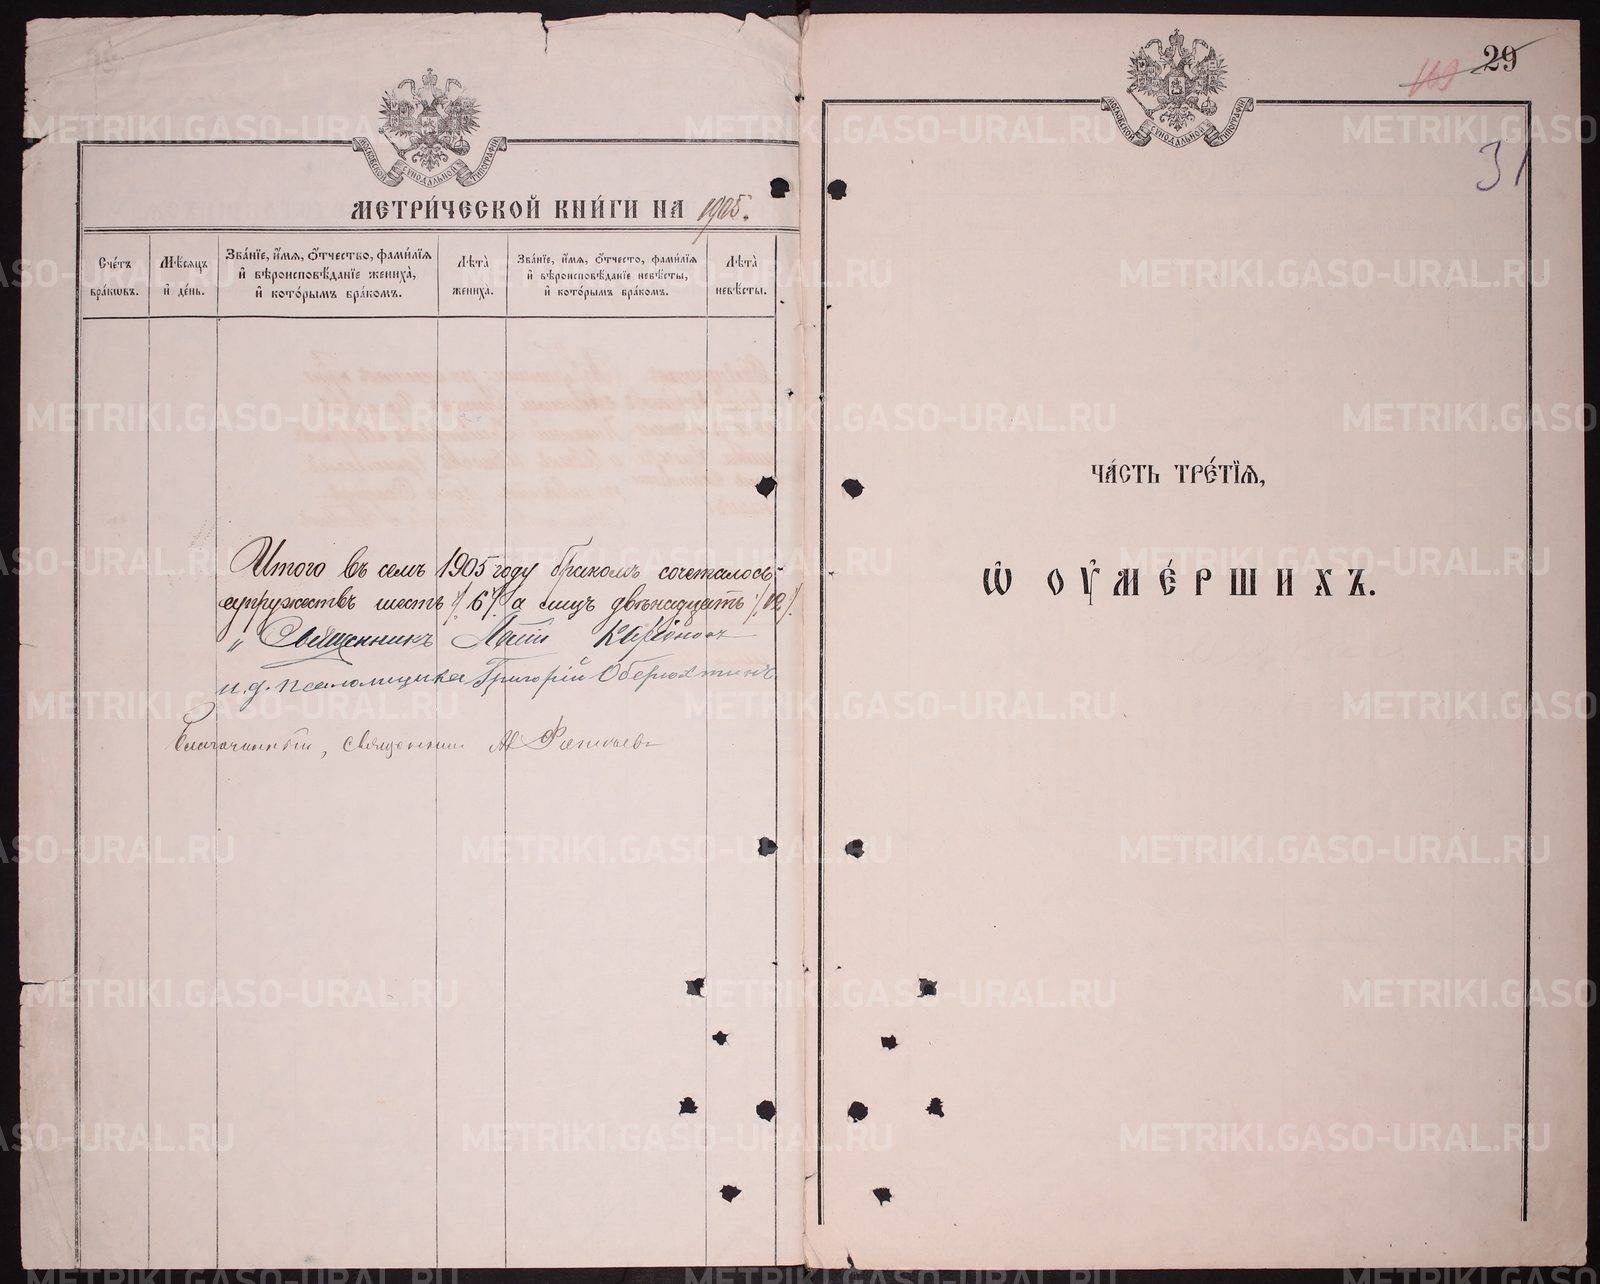 МОСКОВСКОЙ СѴНОДАЛЬНОЙ ТИПОГРАФІИ
МЕТРИ́ЧЕСКОЙ КНИ́ГИ НА 1905.
Сче́тъ бра́ковъ.
Мѣ́сяцъ и҆ де́нь.
Зва́нїе, и҆́мѧ, ѻ҆́тчество, фами́лїѧ
и҆ вѣроисповѣ́данїе жениха̀,
и҆ кото́рымъ бра́комъ.
Лѣта̀ жениха̀.
Зва́нїе, и҆́мѧ, ѻ҆́тчество, фами́лїѧ
и҆ вѣроисповѣ́данїе невѣ́сты,
и҆ кото́рымъ бра́комъ.
Лѣта̀ невѣ́сты.
Итого въ семъ 1905 году бракомъ сочеталось
супружествъ шесть /6/ а лицъ двѣнадцать /12/.
Священникъ
и.д. псаломщика Григорій Оберюхтинъ.
Благочинный, священник
МОСКОВСКОЙ СѴНОДАЛЬНОЙ ТИПОГРАФІИ
109 29
31
ЧА́СТЬ ТРЕ́ТЇѦ,
Ѡ҆ ОУ҆МЕ́РШИХЪ.
METRIKI.GASO-URAL.RU